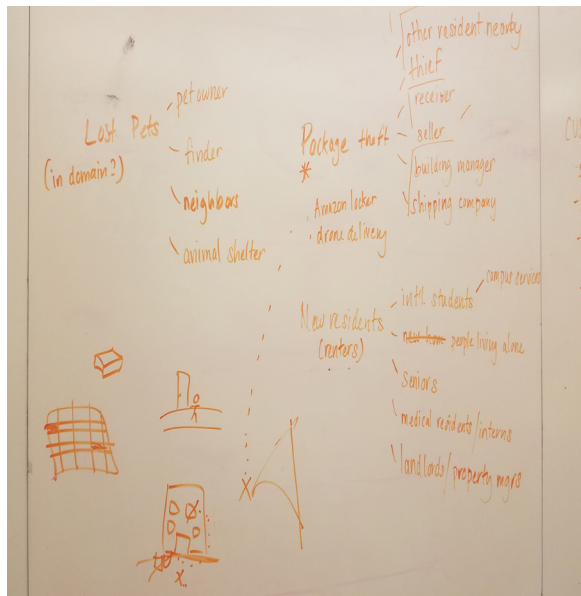 Lost Pets
(in domain?)
pet owner
finder
neighbors
animal shelter
Package theft
*
Amazon locker
drone delivery
other resident nearby
thief
receiver
seller
building manager
shipping company
New residents
(renters)
intl. students
campus services
people living alone
seniors
medical residents/interns
landlords/property mgrs